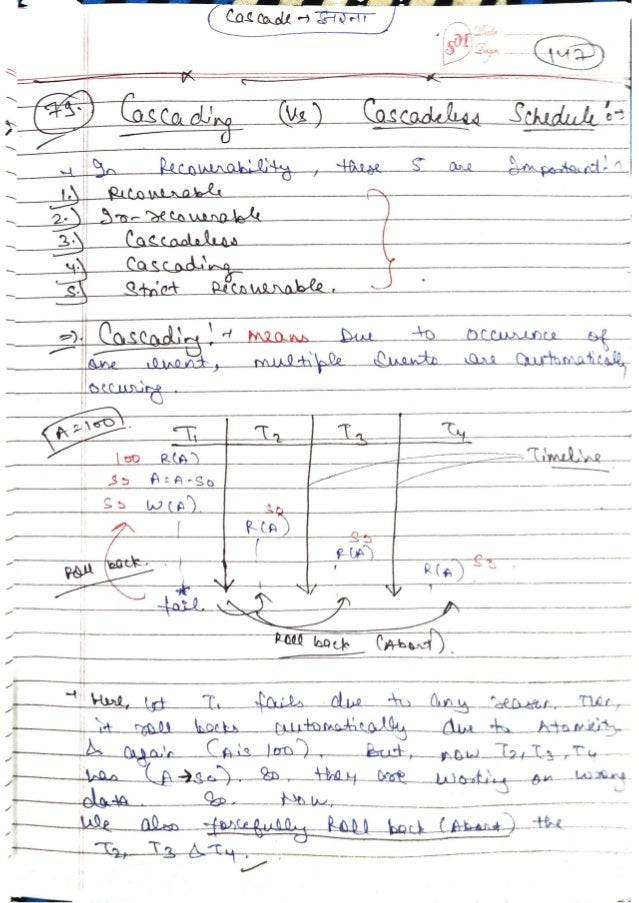 Cascade → झरना
SM Date
Page
147
79. Cascading (Vs) Cascadeless Schedule :→
→ In Recoverability, these 5 are Important :-
1.) Recoverable
2.) Ir-recouerable
3.) Cascadeless
4.) Cascading
5.) Strict Recoverable.
⇒ Cascading :→ means Due to occurence of
one event, multiple events are automatically
occuring.
A=100
T1 T2 T3 T4
Timeline
100 R(A)
50 A=A-50
50 W(A)
50
R(A)
50
R(A)
R(A) 50
Roll back.
* fail
Roll back (Abort).
→ Here, let T1 fails due to any reason. Then,
it roll backs automatically due to Atomicity
& again (A is 100). But, now T2, T3, T4
has (A→50). So, they are working on wrong
data. So. Now,
We also forcefully Roll back (Abort) the
T2, T3 & T4.